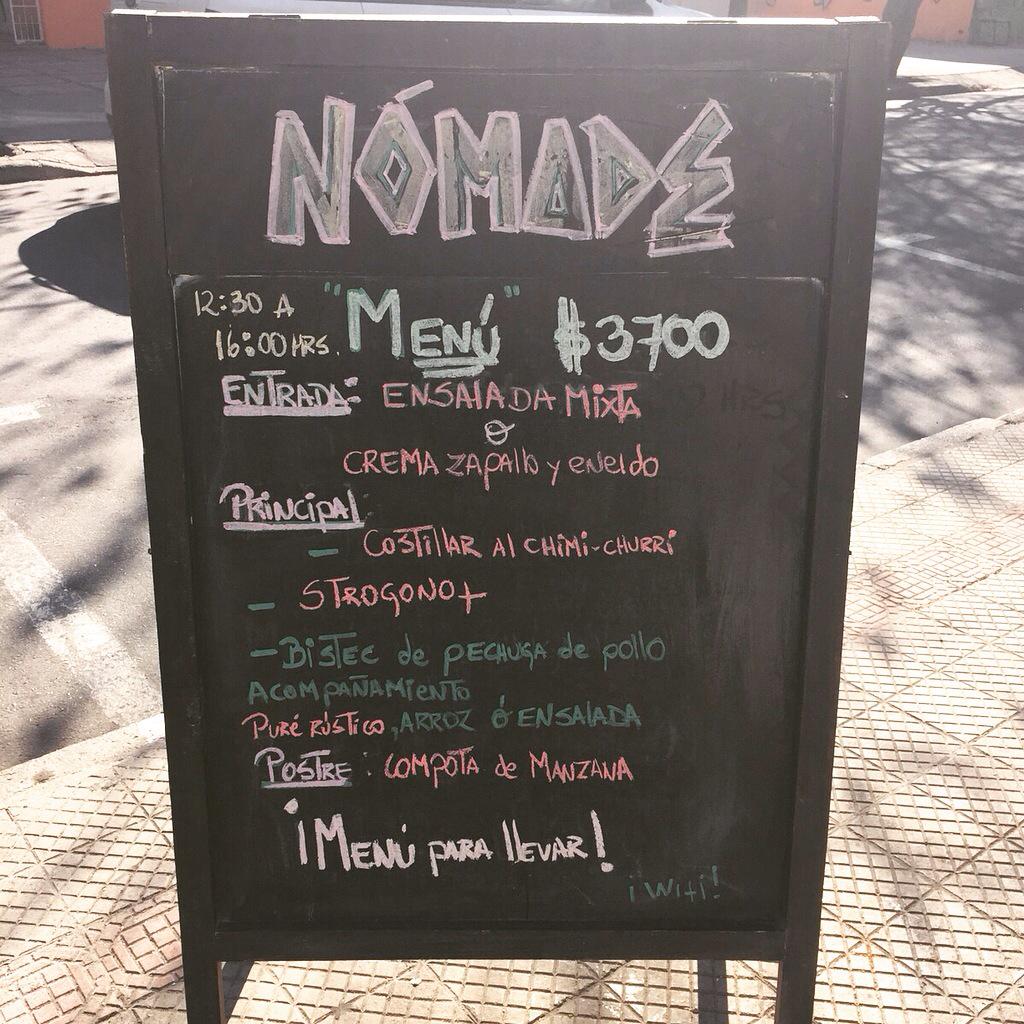 NÓMADE
12:30 A
16:00 HRS.
"MENÚ" $3700
ENTRADA: ENSALADA MIXTA
O
CREMA ZAPALLO y ENELDO
PRINCIPAL:
- COSTILLAR AL CHIMI-CHURRI
- STROGONOF
- BISTEC de PECHUGA de pollo
ACOMPAÑAMIENTO
PURÉ RÚSTICO, ARROZ Ó ENSALADA
POSTRE: COMPOTA de MANZANA
¡MENÚ PARA LLEVAR!
¡WIFI!